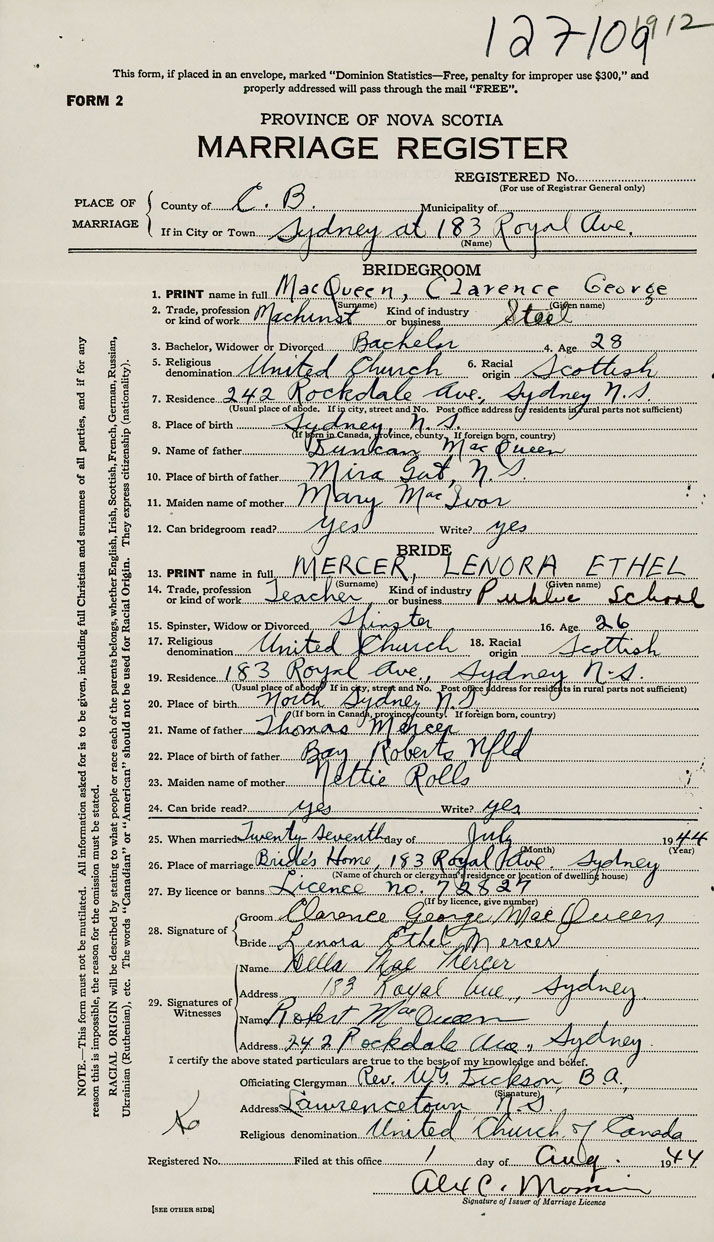 127109 1912
This form, if placed in an envelope, marked "Dominion Statistics—Free, penalty for improper use $300," and
properly addressed will pass through the mail "FREE".
FORM 2
PROVINCE OF NOVA SCOTIA
MARRIAGE REGISTER
REGISTERED No.
(For use of Registrar General only)
PLACE OF MARRIAGE
County of C. B. Municipality of
If in City or Town Sydney at 183 Royal Ave.
(Name)
BRIDEGROOM
1. PRINT name in full MacQueen, Clarence George
(Surname) (Given name)
2. Trade, profession or kind of work Machinst Kind of industry or business Steel
3. Bachelor, Widower or Divorced Bachelor 4. Age 28
5. Religious denomination United Church 6. Racial origin Scottish
7. Residence 242 Rockdale Ave., Sydney N.S.
(Usual place of abode. If in city, street and No. Post office address for residents in rural parts not sufficient)
8. Place of birth Sydney, N.S.
(If born in Canada, province, county. If foreign born, country)
9. Name of father Duncan MacQueen
10. Place of birth of father Mira Gut, N.S.
11. Maiden name of mother Mary MacIvor
12. Can bridegroom read? yes Write? yes
BRIDE
13. PRINT name in full MERCER, LENORA ETHEL
(Surname) (Given name)
14. Trade, profession or kind of work Teacher Kind of industry or business Public School
15. Spinster, Widow or Divorced Spinster 16. Age 26
17. Religious denomination United Church 18. Racial origin Scottish
19. Residence 183 Royal Ave., Sydney N.S.
(Usual place of abode. If in city, street and No. Post office address for residents in rural parts not sufficient)
20. Place of birth North Sydney N.S.
(If born in Canada, province, county. If foreign born, country)
21. Name of father Thomas Mercer
22. Place of birth of father Bay Roberts Nfld
23. Maiden name of mother Nettie Rolls
24. Can bride read? yes Write? yes
25. When married Twenty seventh day of July 1944
(Month) (Year)
26. Place of marriage Bride's Home, 183 Royal Ave. Sydney
(Name of church or clergyman's residence or location of dwelling house)
27. By licence or banns Licence no. 72827
(If by licence, give number)
28. Signature of
Groom Clarence George MacQueen
Bride Lenora Ethel Mercer
29. Signatures of Witnesses
Name Della Mae Mercer
Address 183 Royal Ave., Sydney
Name Robert MacQueen
Address 242 Rockdale Ave., Sydney
I certify the above stated particulars are true to the best of my knowledge and belief.
Officiating Clergyman Rev. W.G. Dickson, B.A.
(Signature)
Address Lawrencetown N.S.
Religious denomination United Church of Canada
Registered No. Filed at this office 1 day of Aug. 1944
Alex C.
Signature of Issuer of Marriage Licence
[SEE OTHER SIDE]
NOTE.—This form must not be mutilated. All information asked for is to be given, including full Christian and surnames of all parties, and if for any
reason this is impossible, the reason for the omission must be stated.
RACIAL ORIGIN will be described by stating to what people or race each of the parents belongs, whether English, Irish, Scottish, French, German, Russian,
Ukrainian (Ruthenian), etc. The words "Canadian" or "American" should not be used for Racial Origin. They express citizenship (nationality).